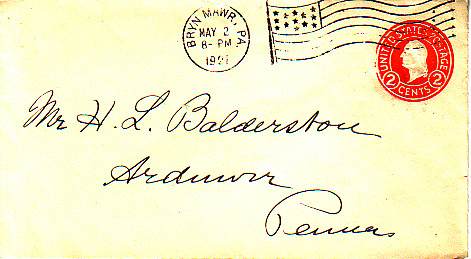 BRYN MAWR, PA
MAY 2
8-PM
UNITED STATES POSTAGE
2 CENTS 2
Mr H. L. Balderston
Ardmore
Penna